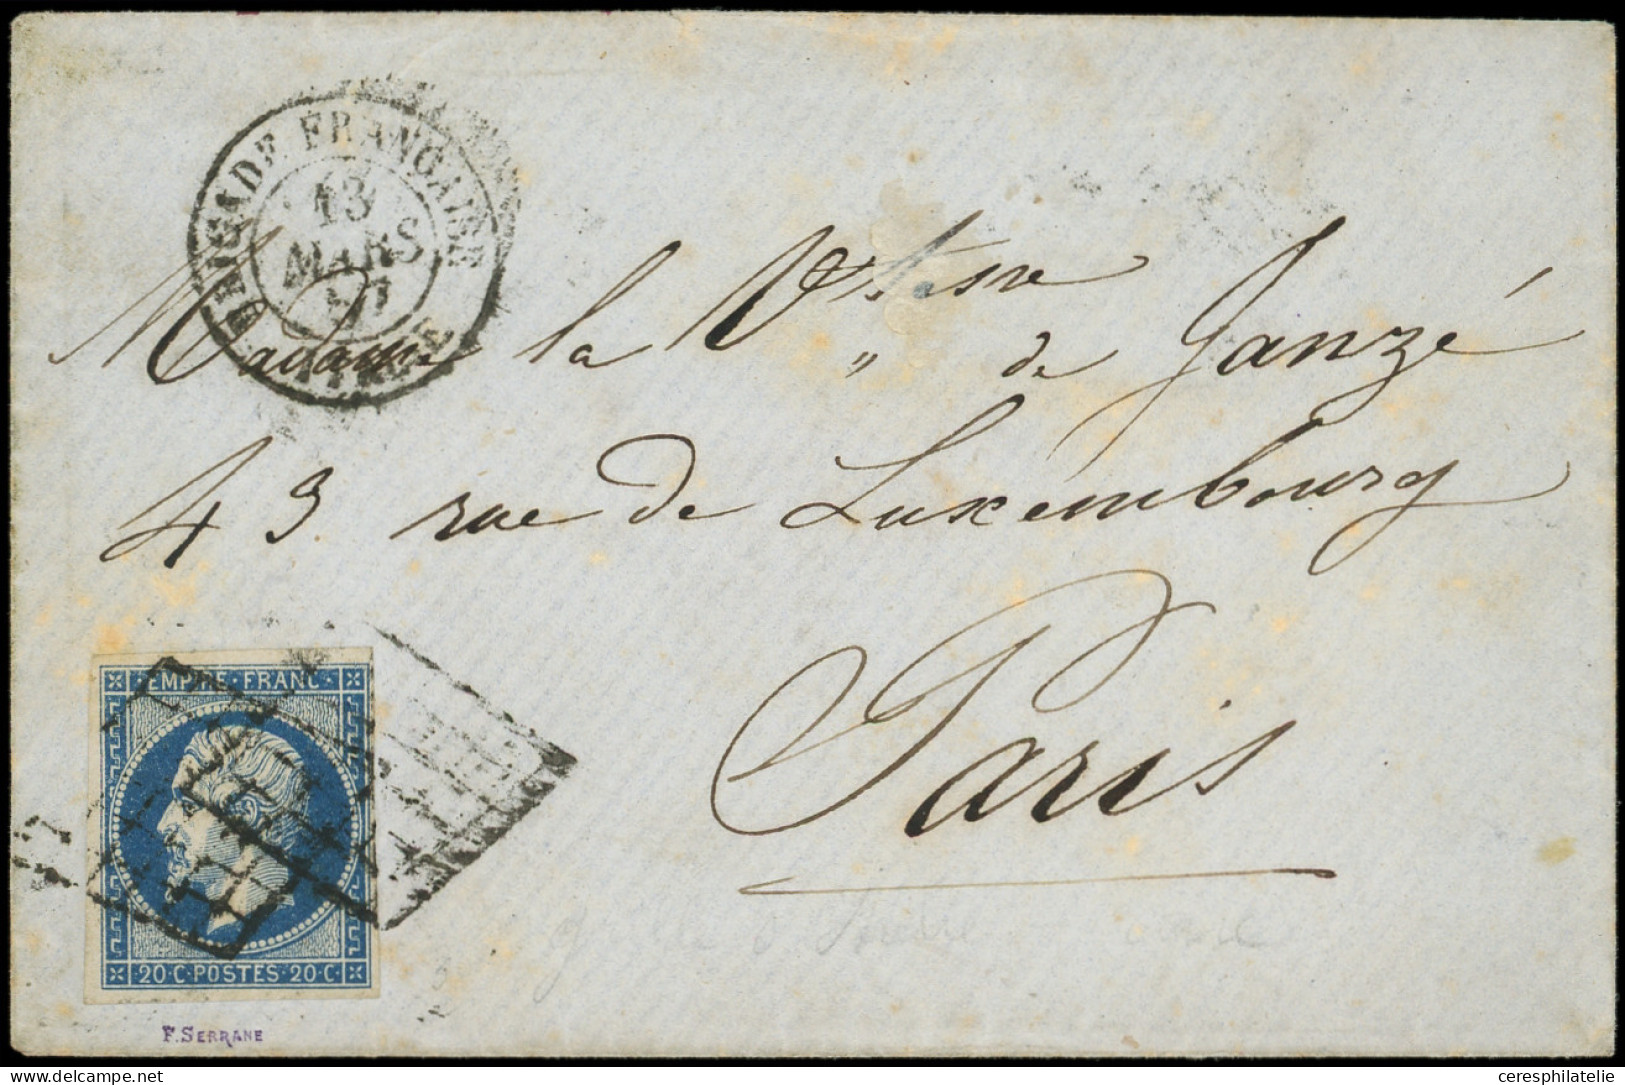 BRIGADE FRANÇAISE
13
MARS
Madame la Vtesse
" de Janzé
43 rue de Luxembourg
Paris
EMPIRE · FRANC ·
20 · C · POSTES · 20 · C ·
F. SERRANE
delcampe.net
ceresphilatelie